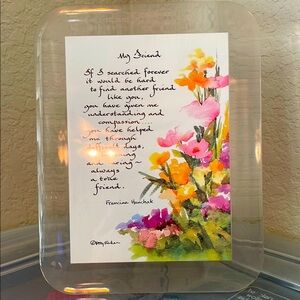 My Friend
If I searched forever
it would be hard
to find another friend
like you,
you have given me
understanding and
compassion....
you have helped
me through
days,
and
always
a true
friend.
Francine